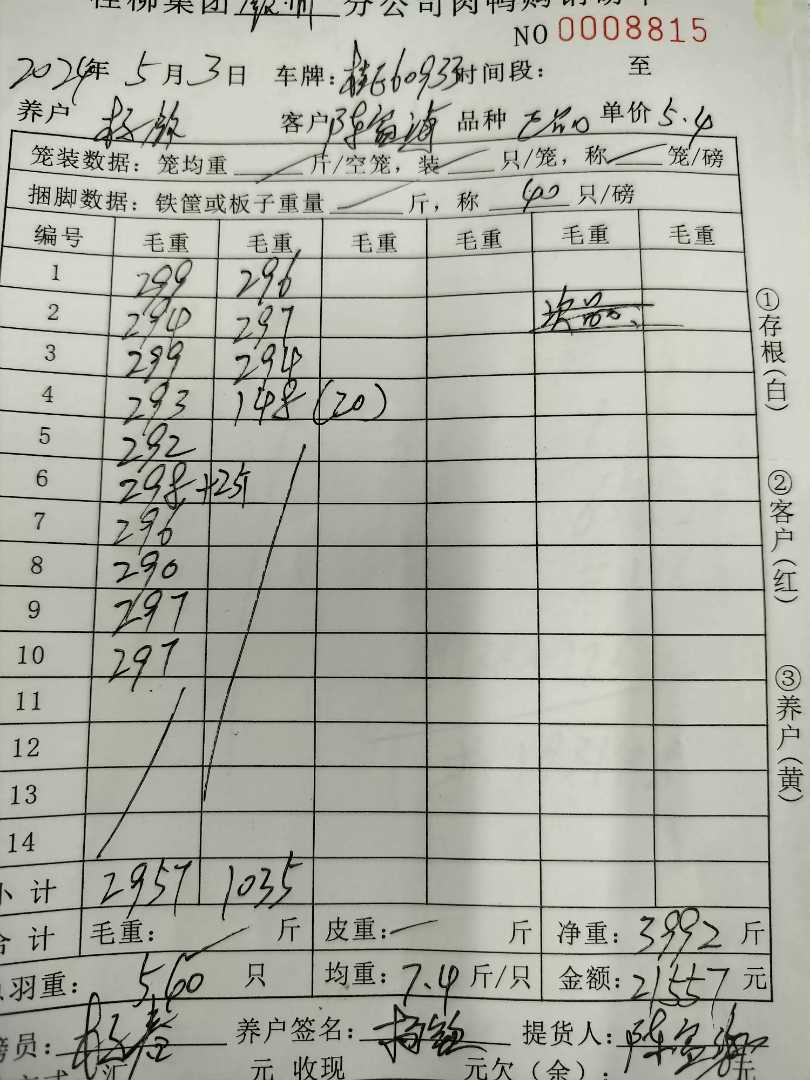 桂柳集团 分公司肉鸭购销磅单
NO 0008815
2024年 5月3日 车牌: 60933 时间段: 至
养户 客户 陈 品种 正品 单价 5.4
笼装数据: 笼均重 斤/空笼, 装 只/笼, 称 笼/磅
捆脚数据: 铁筐或板子重量 斤, 称 40 只/磅
编号 毛重 毛重 毛重 毛重 毛重 毛重
1 299 296
2 294 297 次品
3 299 294
4 293 148 (20)
5 292
6 298+2斤
7 296
8 290
9 297
10 297
11
12
13
14
小计 2957 1035
合计 毛重: 斤 皮重: 斤 净重: 3992 斤
羽重: 540 只 均重: 7.4 斤/只 金额: 21557 元
磅员: 养户签名: 提货人: 陈
汇 元 收现 元欠(余): 元
①存根(白)
②客户(红)
③养户(黄)